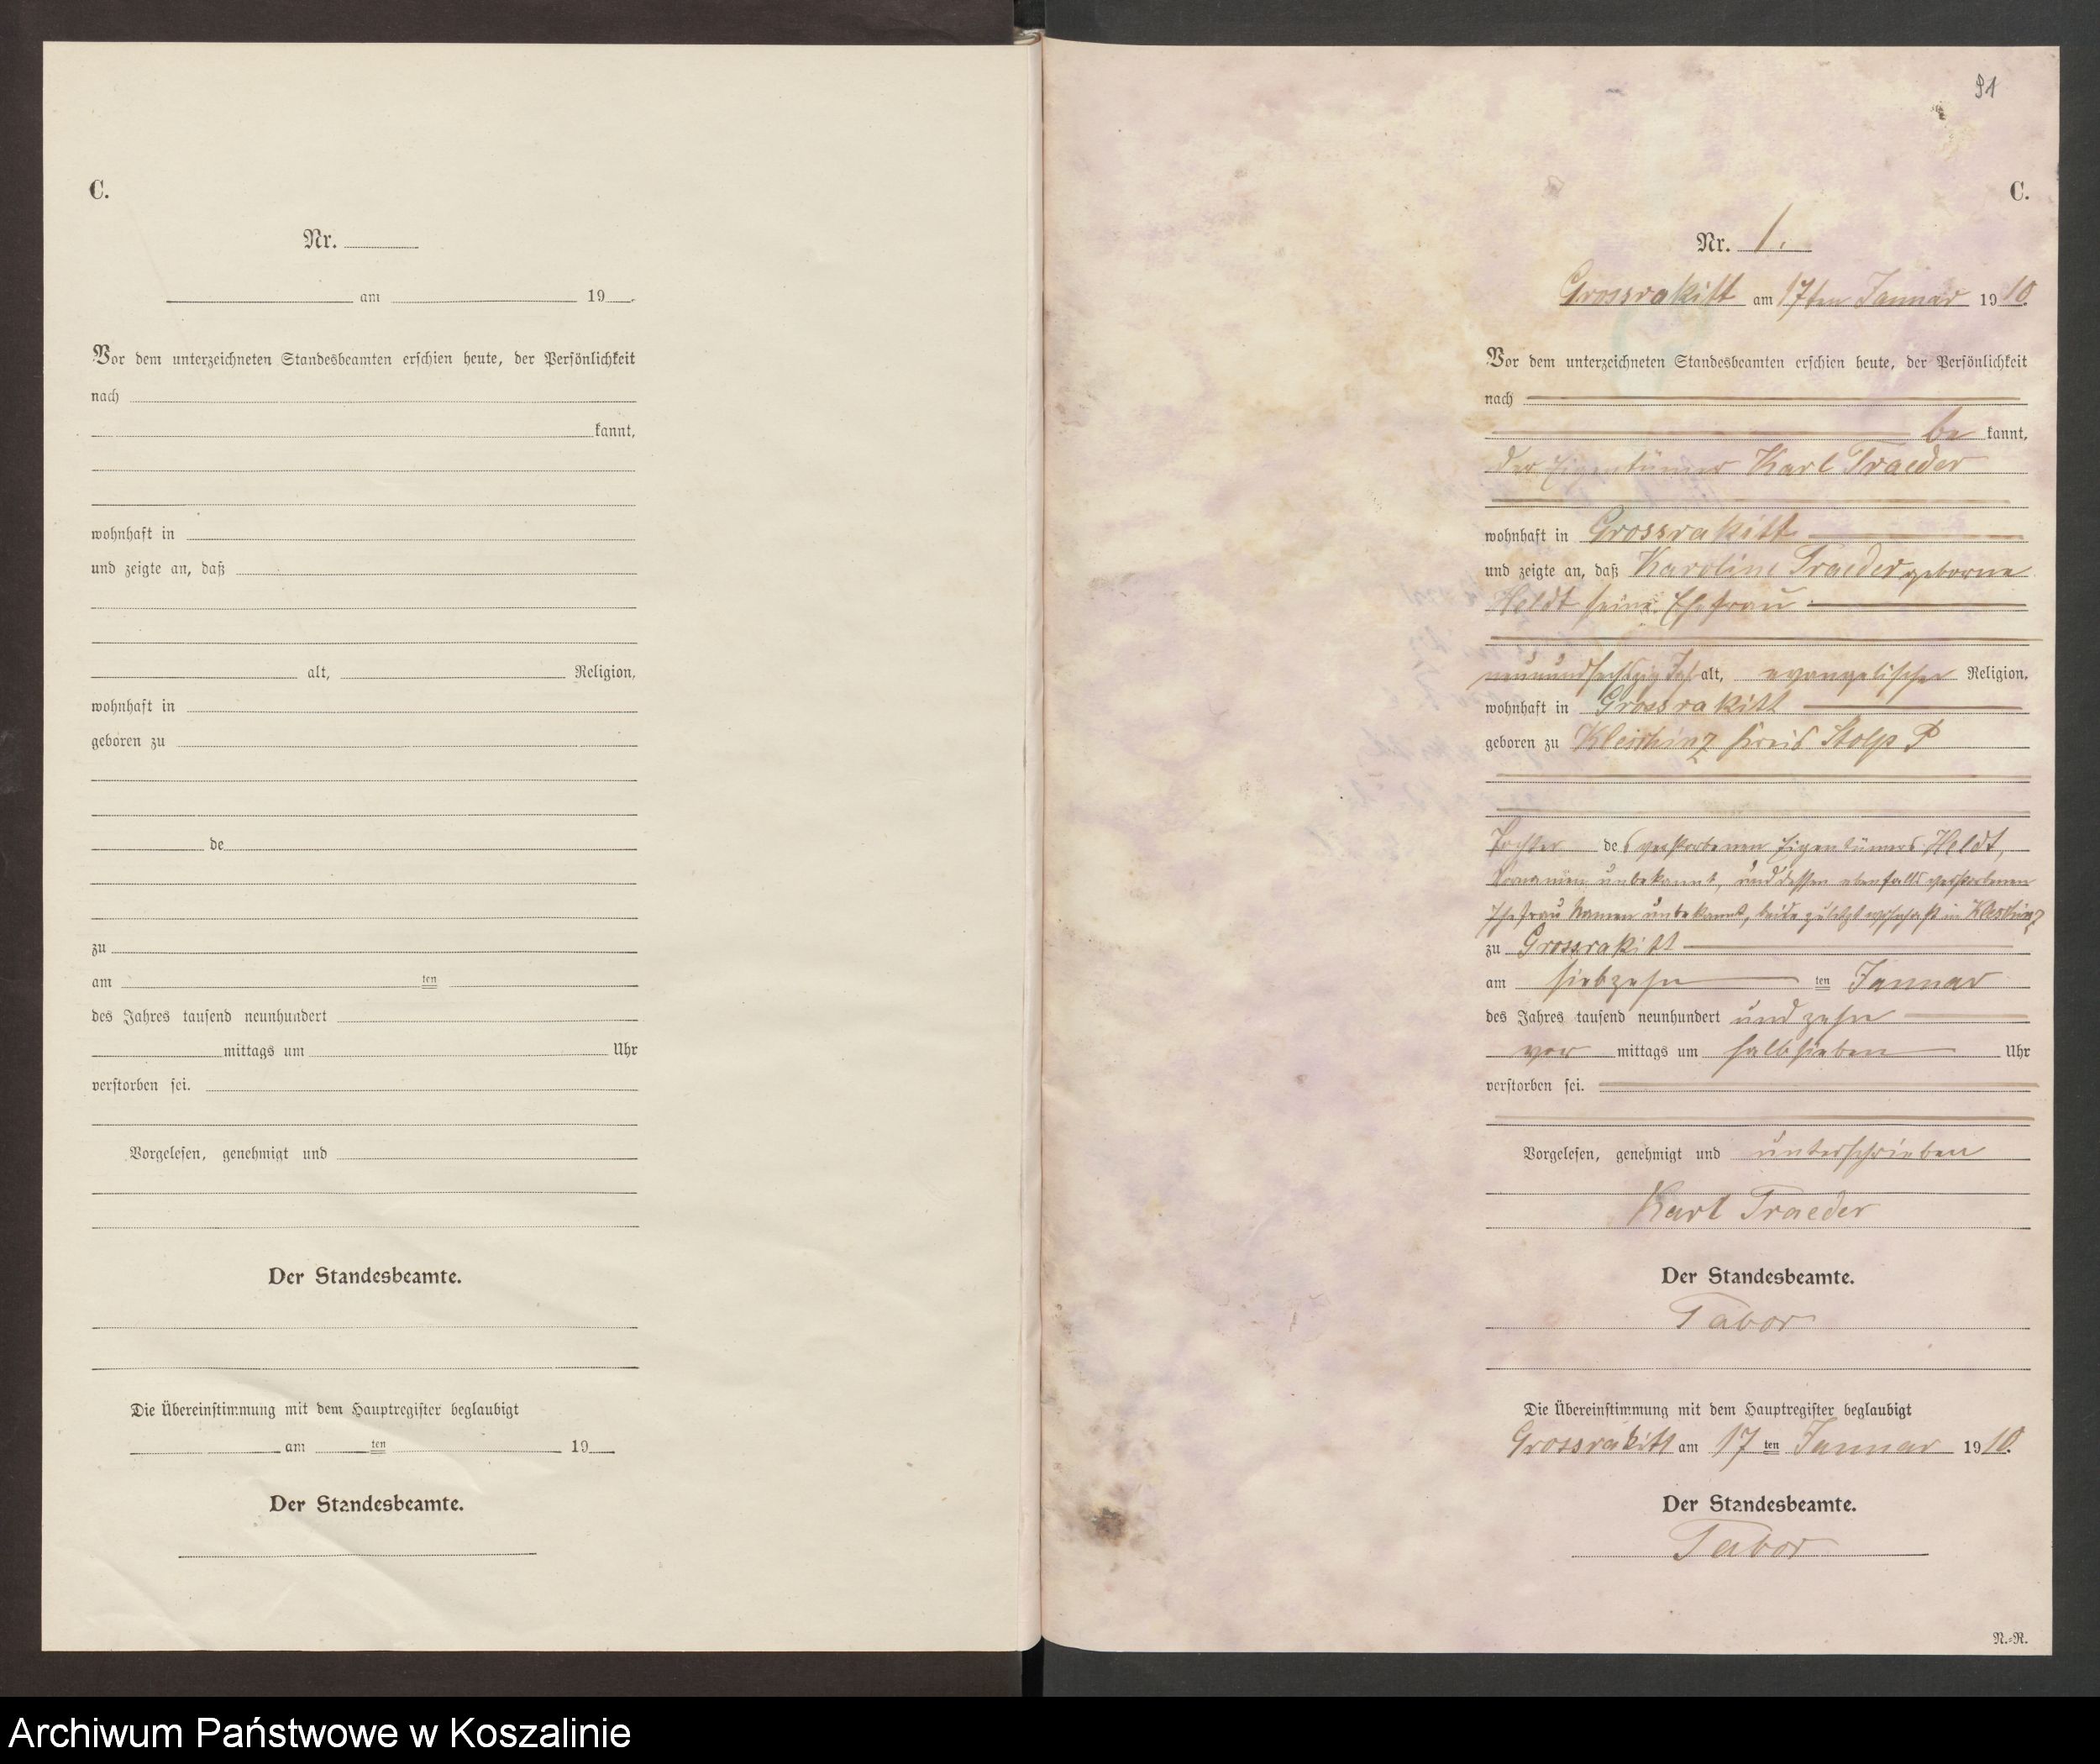 C.
Nr.
am 19
Vor dem unterzeichneten Standesbeamten erschien heute, der Persönlichkeit
nach
kannt,
wohnhaft in
und zeigte an, daß
alt, Religion,
wohnhaft in
geboren zu
de
zu
am ten
des Jahres tausend neunhundert
mittags um Uhr
verstorben sei.
Vorgelesen, genehmigt und
Der Standesbeamte.
Die Übereinstimmung mit dem Hauptregister beglaubigt
am ten 19
Der Standesbeamte.
91
C.
Nr. 1.
Grossrakitt am 17ten Januar 1910.
Vor dem unterzeichneten Standesbeamten erschien heute, der Persönlichkeit
nach
be kannt,
der Eigentümer Karl Traeder
wohnhaft in Grossrakitt
und zeigte an, daß Karoline Traeder geborne
Heldt seine Ehefrau
neunundsechzig Jah alt, evangelischer Religion,
wohnhaft in Grossrakitt
geboren zu Kleschinz Kreis Stolp P
Tochter des verstorbenen Eigentümers Heldt,
Vornamen unbekannt, und dessen ebenfalls verstorbenen
Ehefrau Namen unbekannt, beide zuletzt wohnhaft in Kleschinz
zu Grossrakitt
am siebzehn ten Januar
des Jahres tausend neunhundert und zehn
vor mittags um halb sieben Uhr
verstorben sei.
Vorgelesen, genehmigt und unterschrieben
Karl Traeder
Der Standesbeamte.
Tabor
Die Übereinstimmung mit dem Hauptregister beglaubigt
Grossrakitt am 17 ten Januar 1910.
Der Standesbeamte.
Tabor
N.-R.
Archiwum Państwowe w Koszalinie